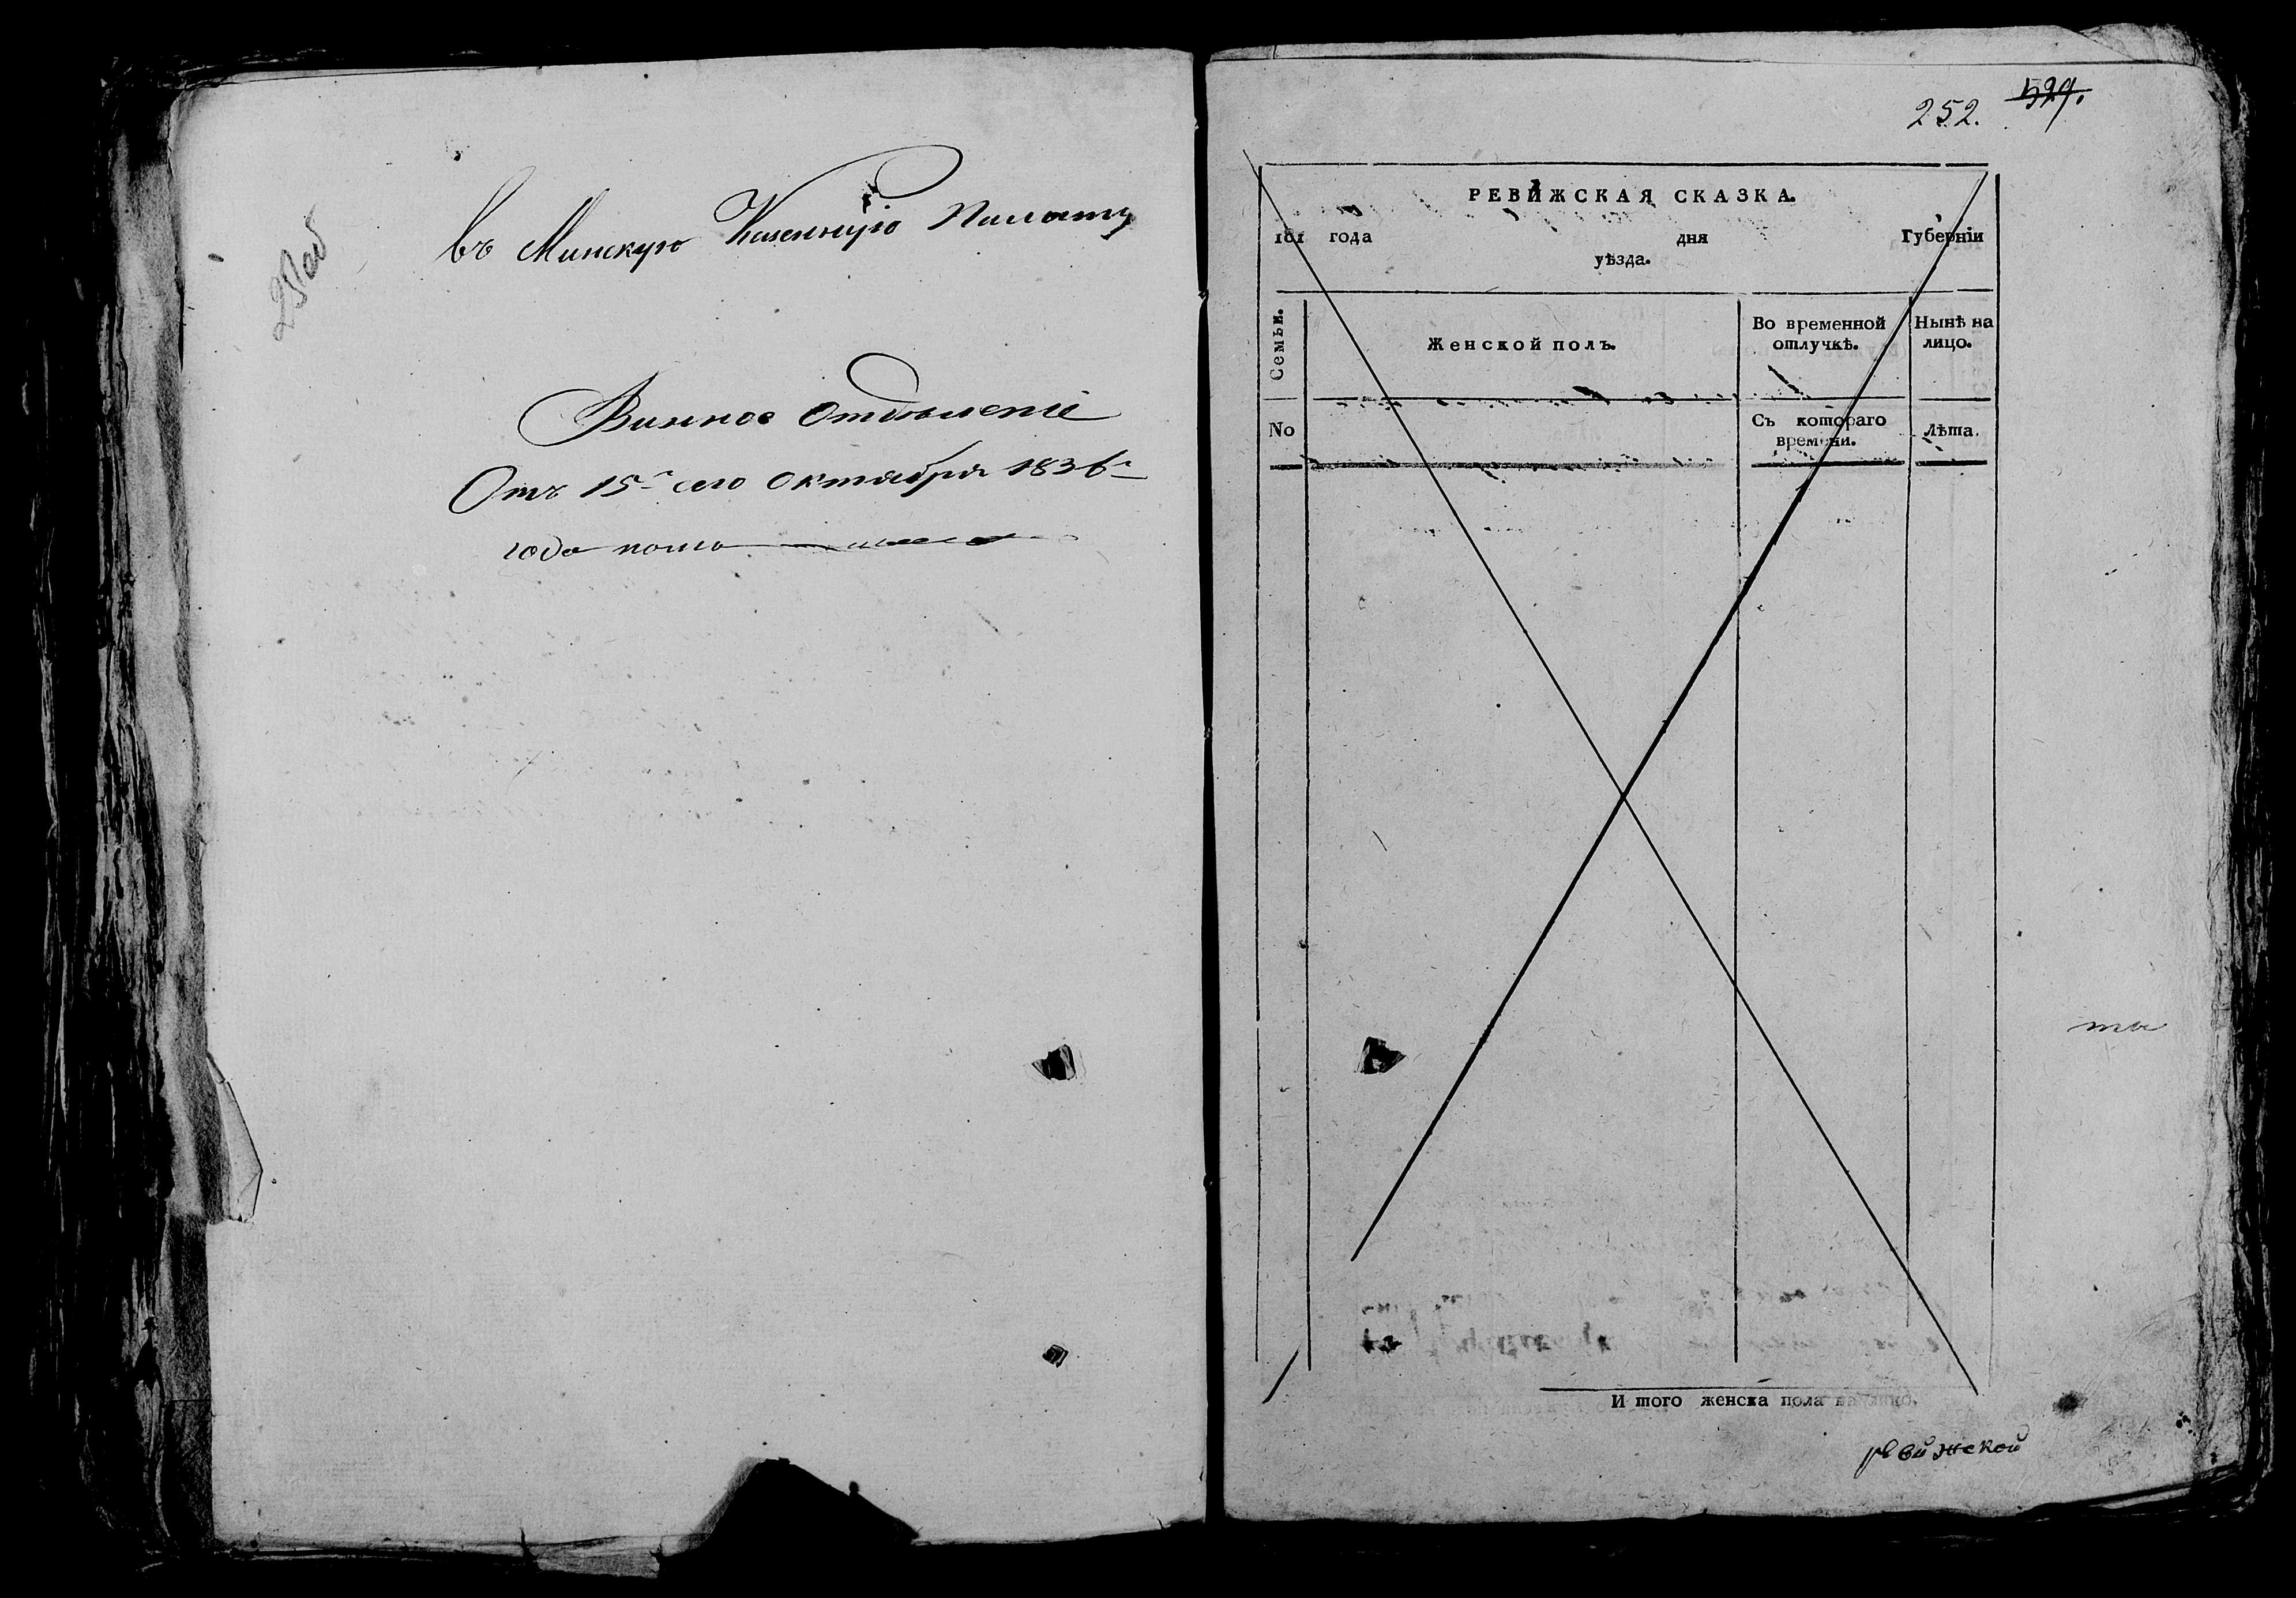 Въ Минскую Казенную Палату
Винное Отделение
Отъ 15го сего Октября 1836го
года
252. 529.
РЕВИЖСКАЯ СКАЗКА.
181 года дня Губерніи
уѣзда.
Семьи.
Женской полъ.
Во временной отлучкѣ.
Нынѣ на лицо.
No
Съ котораго времени.
Лѣта.
И того женска пола на лицо.
ревижской